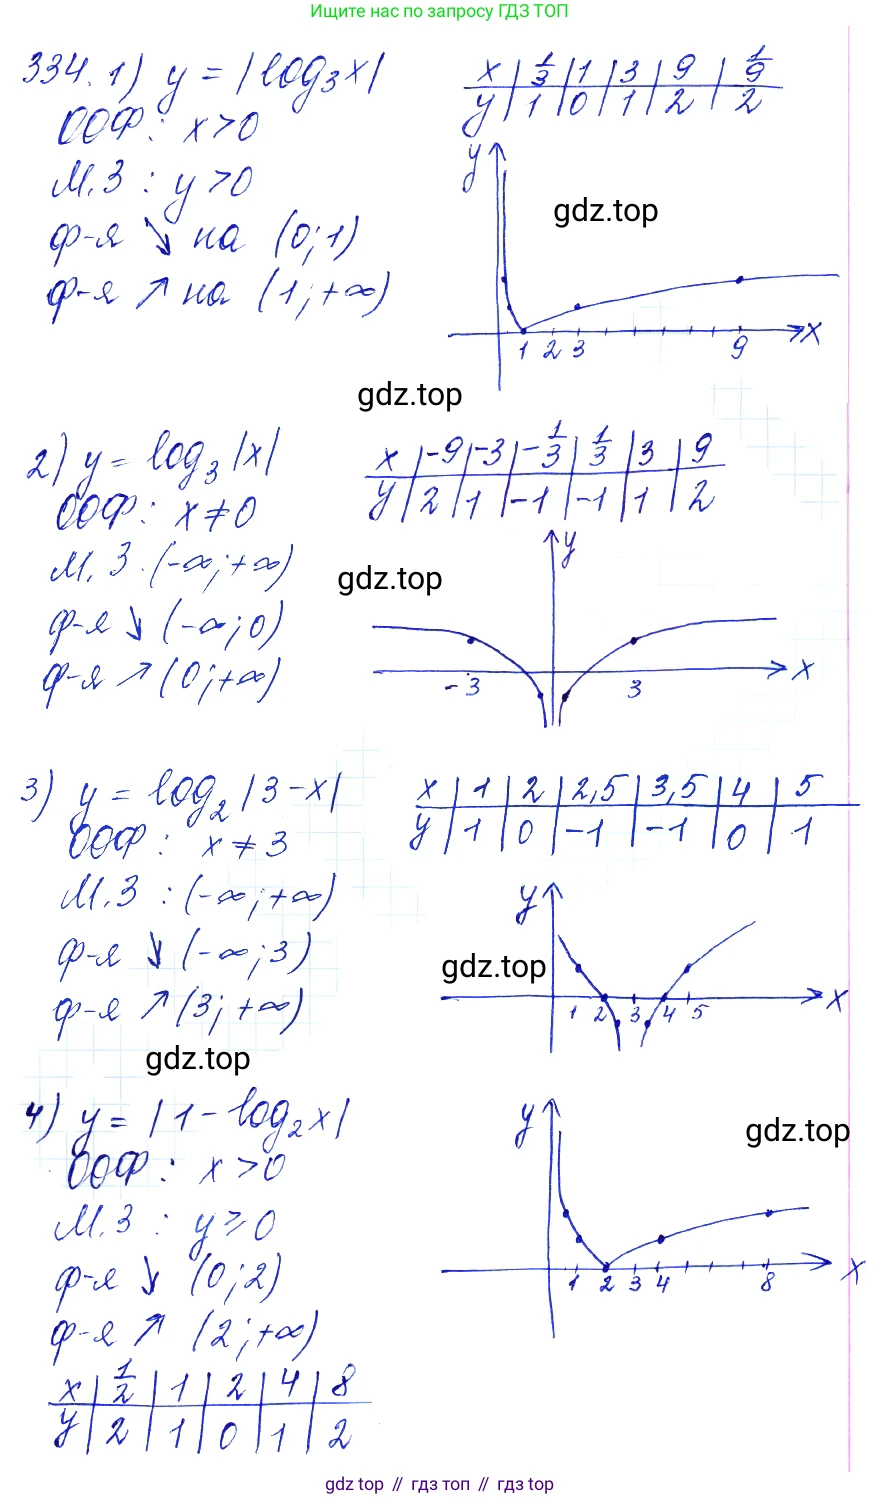 Ищите нас по запросу ГДЗ ТОП
334. 1) y = |log₃x|
ООФ: x>0
М.З : y>0
ф-я ↘ на (0;1)
ф-я ↗ на (1;+∞)
x | 1/3 | 1 | 3 | 9 | 1/9
y | 1 | 0 | 1 | 2 | 2
y
gdz.top
1 2 3 9 x
gdz.top
2) y = log₃|x|
ООФ: x≠0
М.З. (-∞;+∞)
ф-я ↘ (-∞;0)
ф-я ↗ (0;+∞)
x | -9 | -3 | -1/3 | 1/3 | 3 | 9
y | 2 | 1 | -1 | -1 | 1 | 2
y
gdz.top
-3 3 x
3) y = log₂|3-x|
ООФ: x≠3
М.З : (-∞;+∞)
ф-я ↘ (-∞;3)
ф-я ↗ (3;+∞)
x | 1 | 2 | 2,5 | 3,5 | 4 | 5
y | 1 | 0 | -1 | -1 | 0 | 1
y
gdz.top
1 2 3 4 5 x
gdz.top
4) y = |1-log₂x|
ООФ: x>0
М.З : y≥0
ф-я ↘ (0;2)
ф-я ↗ (2;+∞)
x | 1/2 | 1 | 2 | 4 | 8
y | 2 | 1 | 0 | 1 | 2
y
gdz.top
1 2 3 4 8 x
gdz.top // гдз топ // гдз.top